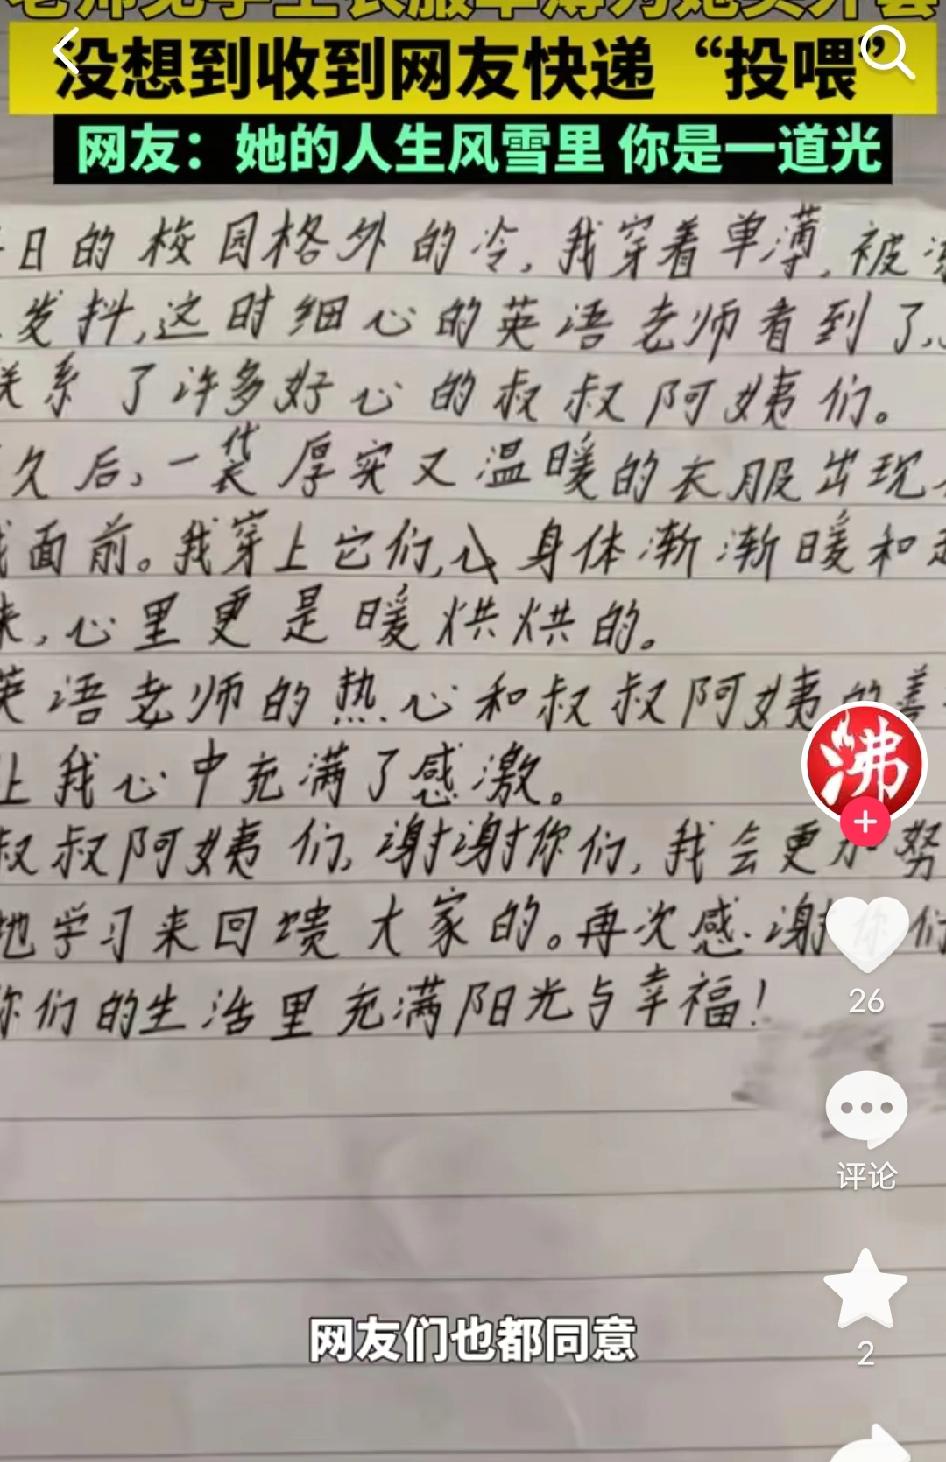 老师见学生衣服单薄为她买外套
没想到收到网友快递“投喂”
网友：她的人生风雪里 你是一道光
日的校园格外的冷，我穿着单薄，被
发抖，这时细心的英语老师看到了，
联系了许多好心的叔叔阿姨们。
久后，一袋厚实又温暖的衣服出现
我面前。我穿上它们，身体渐渐暖和
来，心里更是暖烘烘的。
英语老师的热心和叔叔阿姨的善
让我心中充满了感激。
叔叔阿姨们，谢谢你们，我会更加努
地学习来回馈大家的。再次感谢你们
你们的生活里充满阳光与幸福！
沸
26
评论
2
网友们也都同意